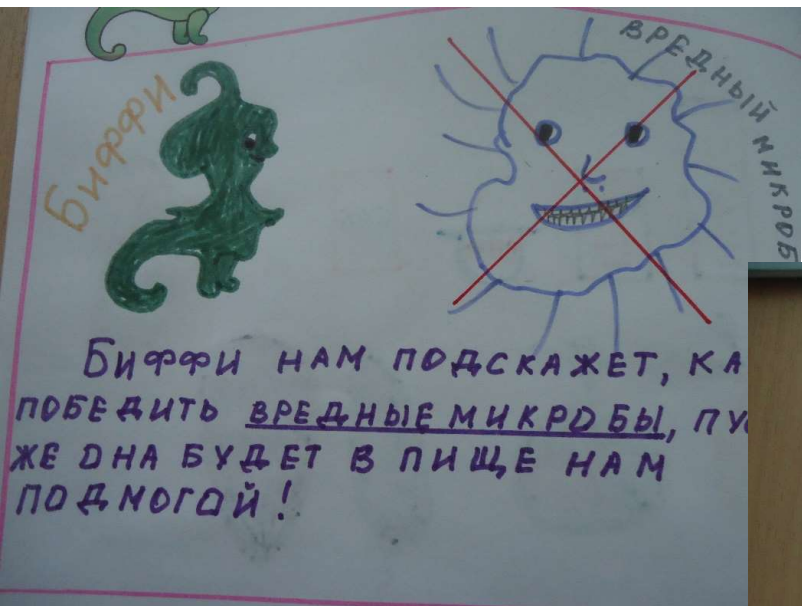 Биффи
ВРЕДНЫЙ МИКРОБ
Биффи НАМ ПОДСКАЖЕТ,
ПОБЕДИТЬ ВРЕДНЫЕ МИКРОБЫ,
ЖЕ ОНА БУДЕТ В ПИЩЕ НАМ
ПОДМОГОЙ!